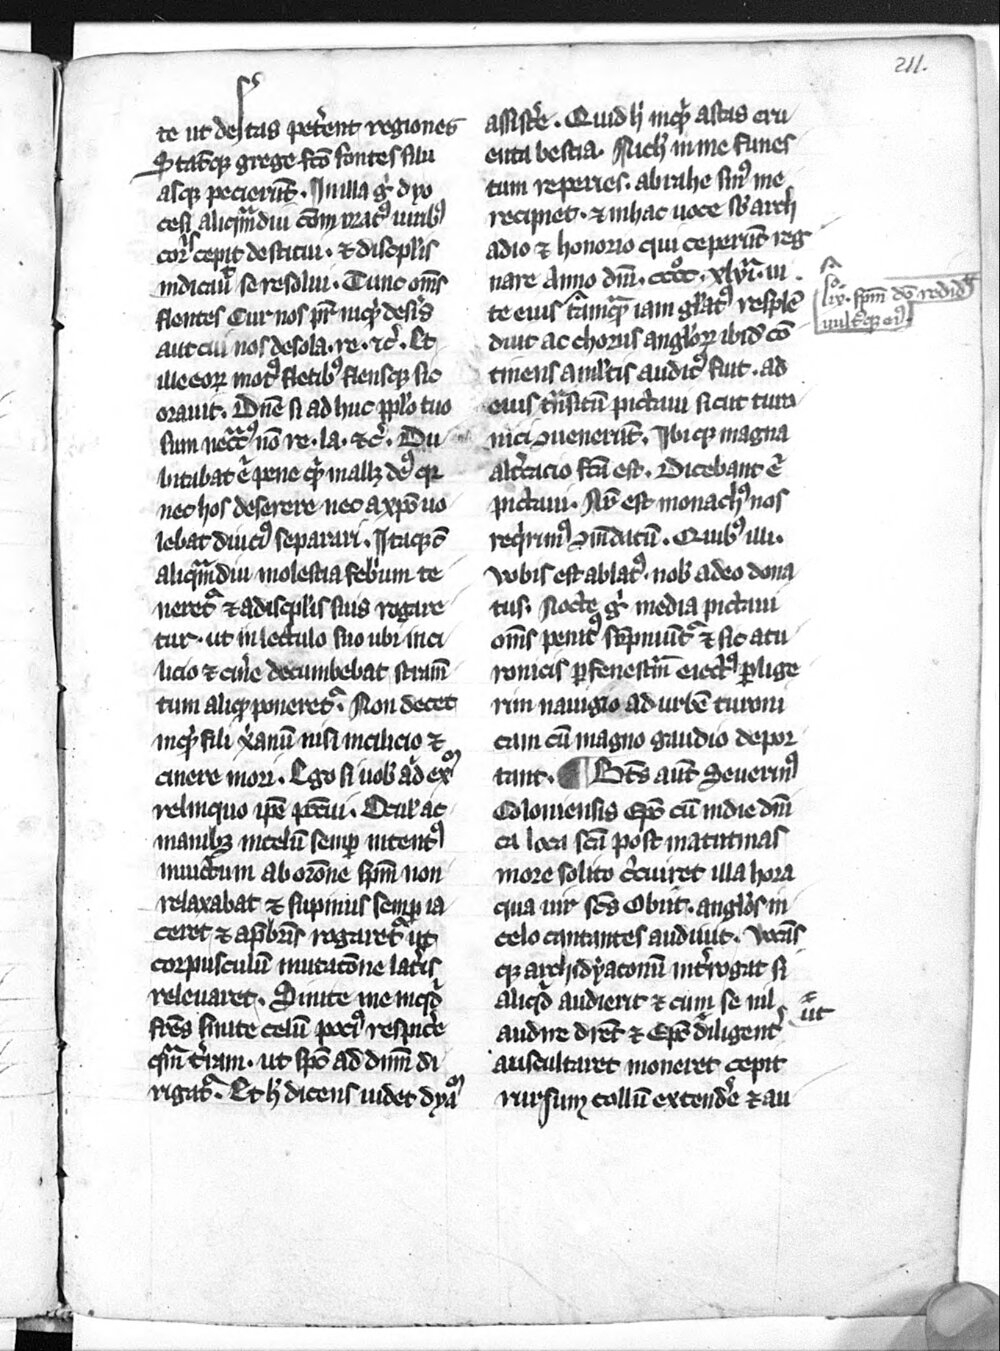 211.
te ut desertas peterent regiones
Statimq grege fco fontes sibi
asq pecierut. In illa g dyo
cesi aliqmdiu comoratq virib
corpis cepit destitui. et discplis
indicauit se resolui. Tunc oms
flentes Cur nos pr inqt desis
aut cui nos desola. re. &c. Et
ille eor motq fletib flensq sic
orauit. Dne si adhuc pplo tuo
sum necciq no re. la. &c. Du
bitabat .n. pene qd mallz deq qr
nec hos deserere nec a xpo uo
lebat diucq separari. Itaq cum
aliqmdiu molestia febrium te
neret et a discplis suis rogare
tur. ut in lectulo suo ubi in ci
licio et cinere decumbebat stram
tum aliqd poneret. Non decet
inqt fili xanum nisi in cilicio et
cinere mori. Ego si uob ad exm
relinquo ipe pccaui. Oculis ac
manibz in celum semp intentq
inuictum ab orone spm non
relaxabat et supinus semp ia
ceret et a psbris rogaretur ut
corpusculu mutatone lateris
releuaret. Sinite me inqid
fres sinite celum pociq respicere
qm terram. ut spc ad dnm di
rigatur. Et h dicens uidet dya
assistere. Quid h inqt astas cru
enta bestia. Nich in me funes
tum reperies. abrahe sinq me
recipiet. et in hac uoce sb arch
adio et honorio qui ceperut reg
nare Anno dni. cccc. xlvi. ui
te eius
so
lxx. spm do redidit
uultq eiq
tamq iam glatq resple
duit ac chorus anglor ibid co
tinens a mltis auditq fuit. ad
eius transitu pictaui sicut turo
nici conuenerut. Ibiq magna
altercacio fca est. Dicebant .n.
pictaui. Nr est monachq nos
reqrimq comdatu. Quibq illi.
Vobis est ablatq. nob a deo dona
tus. Nocte g media pictaui
oms penitq sopiuntur et sic a tu
ronicis p fenestram eiectq p lige
rim nauigio ad urbe turoni
cam cu magno gaudio depor
tant. ¶ Bts aut Seuerinq
Coloniensis Epc cu in die dni
ca loca sca post matutinas
more solito circuiret illa hora
qua uir scs Obiit. anglos in
celo cantantes audiuit. Vocans
q archidyaconu interrogat si
aliqd audierit et cum se nil
audire diret et Epc diligenter
ut
auscultaret moneret cepit
rursum collu extendere et au